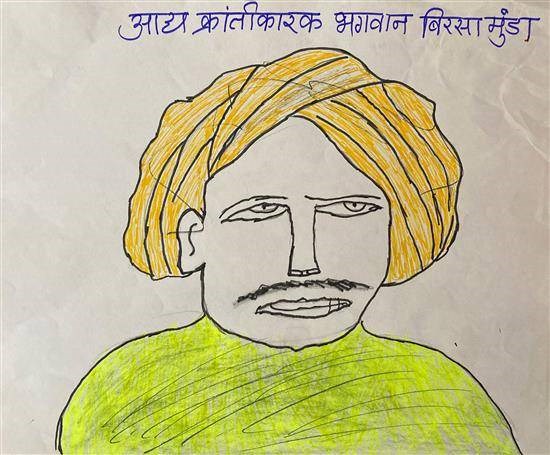 आद्य क्रांतीकारक भगवान बिरसा मुंडा